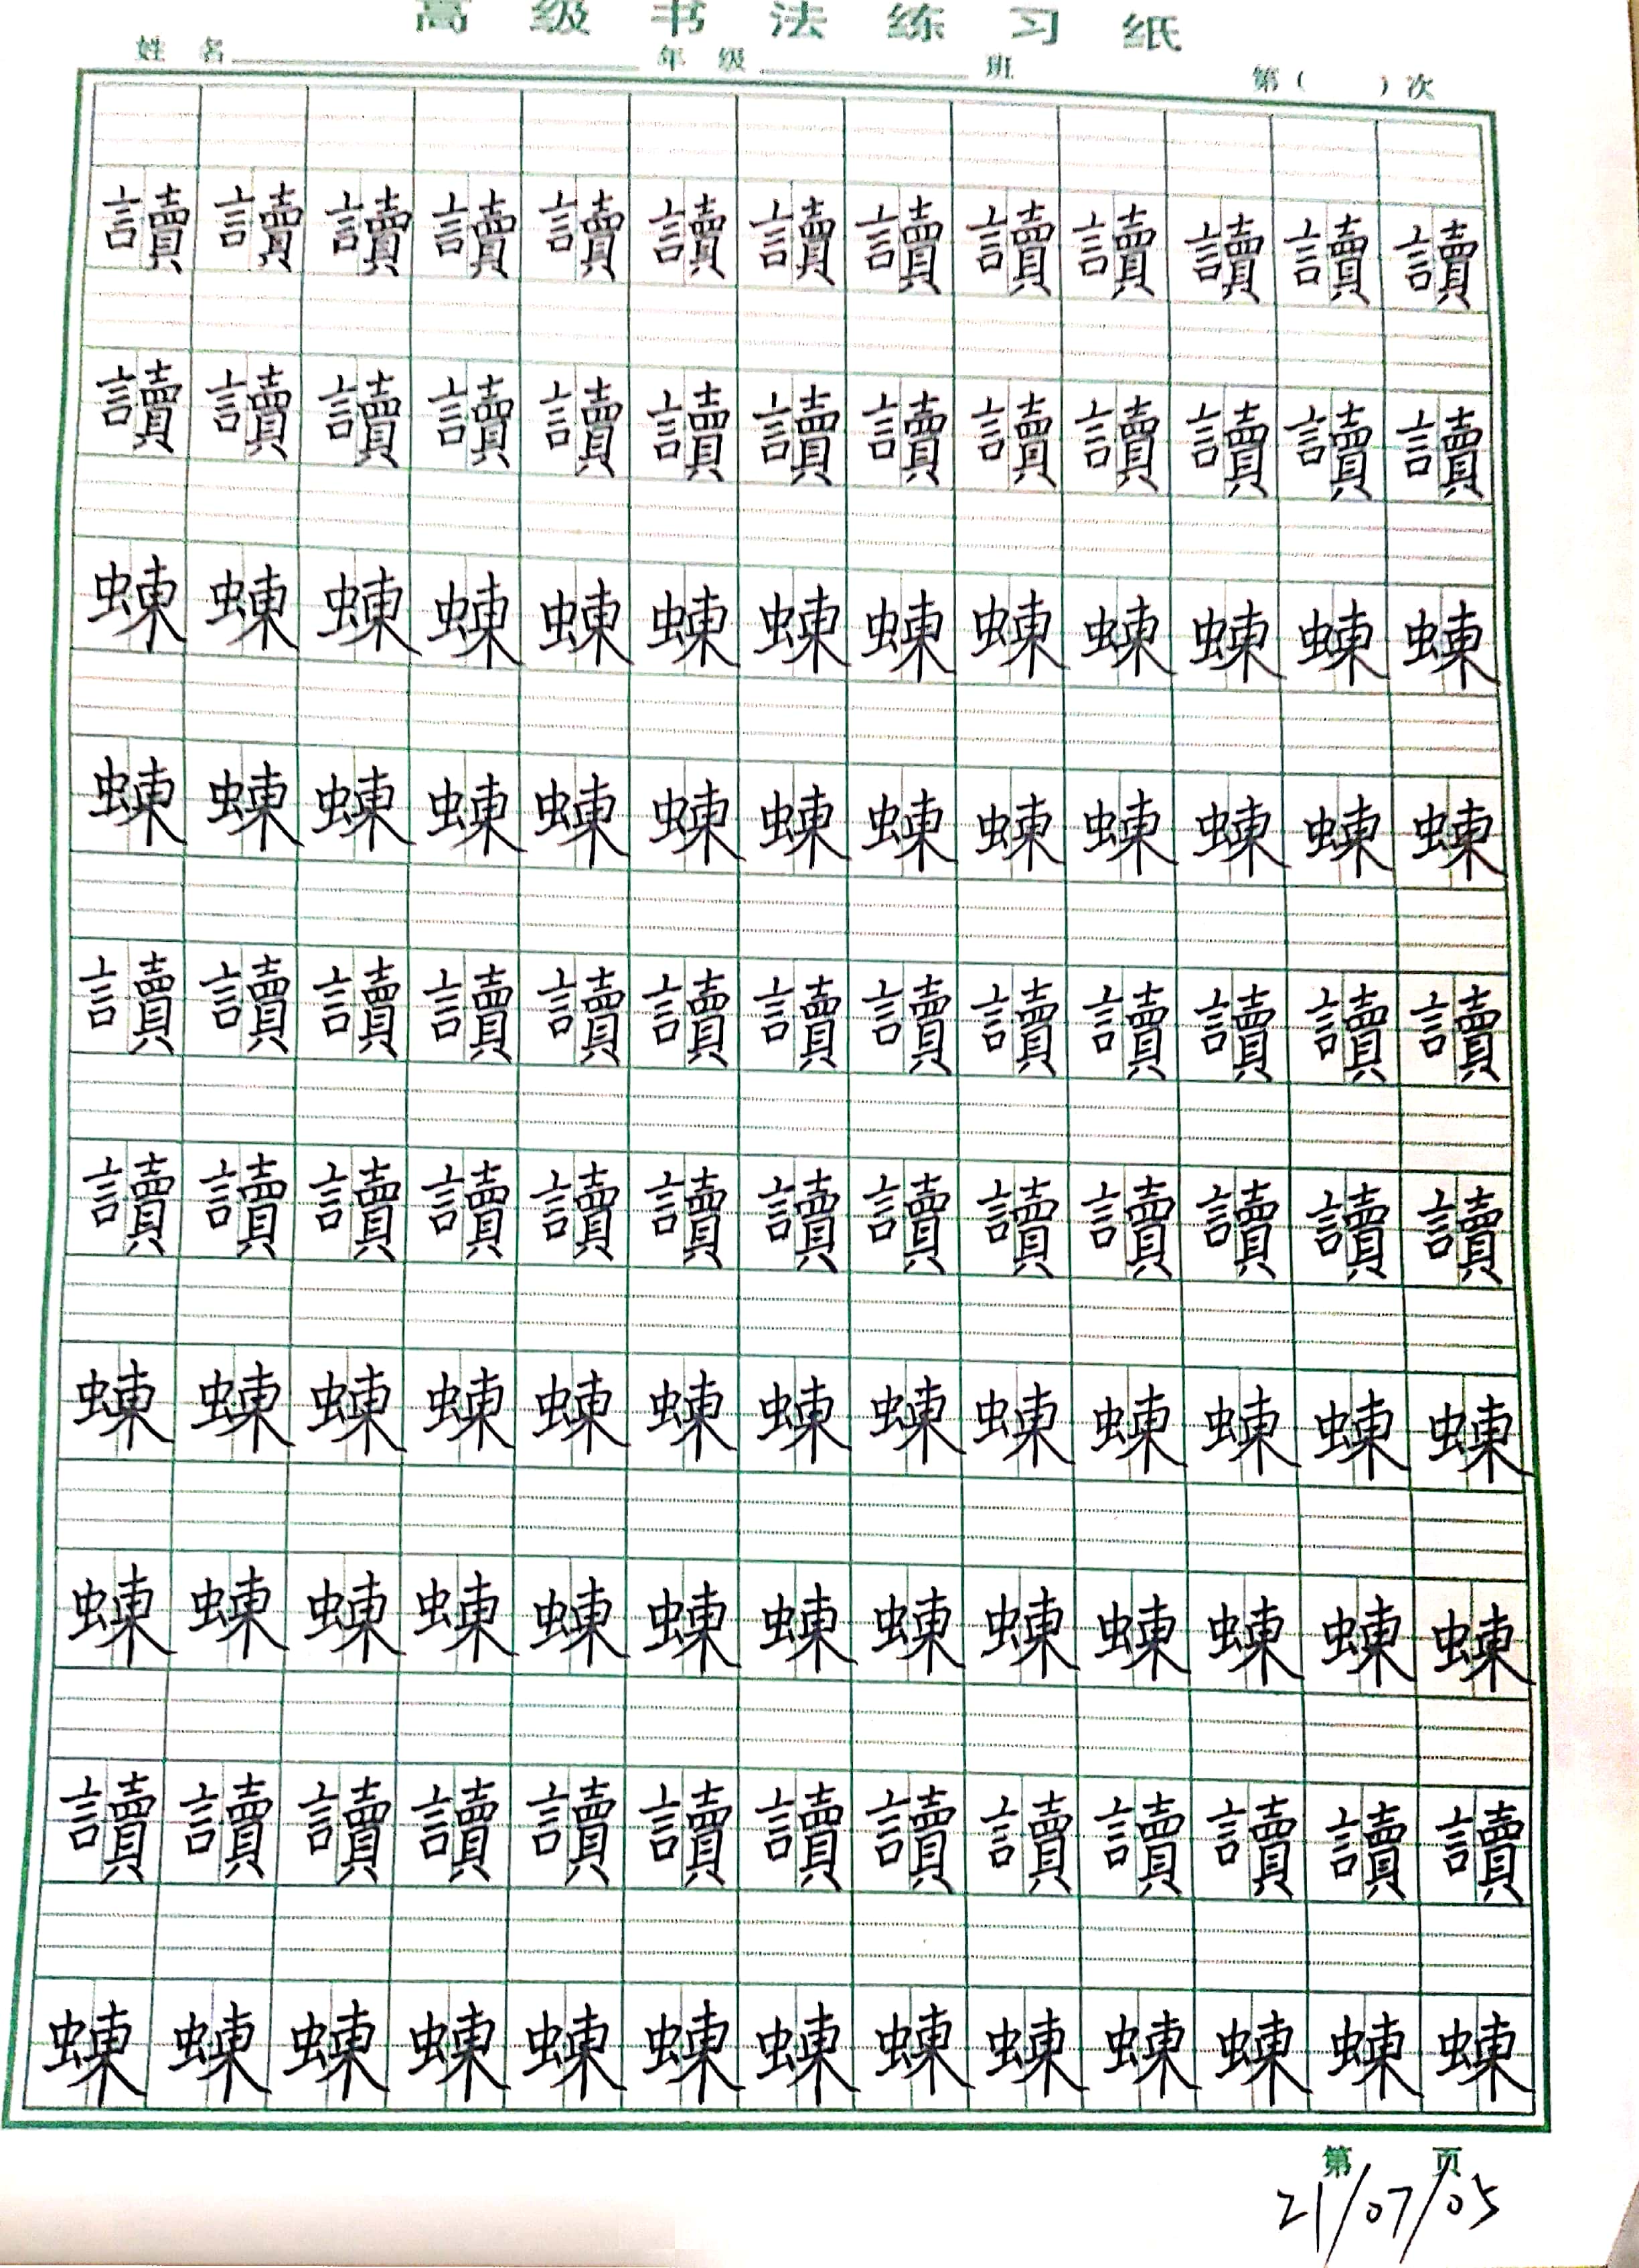 高级书法练习纸
姓名 年级 班 第( )次
讀讀讀讀讀讀讀讀讀讀讀讀讀
讀讀讀讀讀讀讀讀讀讀讀讀讀
蝀蝀蝀蝀蝀蝀蝀蝀蝀蝀蝀蝀蝀
蝀蝀蝀蝀蝀蝀蝀蝀蝀蝀蝀蝀蝀
讀讀讀讀讀讀讀讀讀讀讀讀讀
讀讀讀讀讀讀讀讀讀讀讀讀讀
蝀蝀蝀蝀蝀蝀蝀蝀蝀蝀蝀蝀蝀
蝀蝀蝀蝀蝀蝀蝀蝀蝀蝀蝀蝀蝀
讀讀讀讀讀讀讀讀讀讀讀讀讀
蝀蝀蝀蝀蝀蝀蝀蝀蝀蝀蝀蝀蝀
第 页
21/07/05